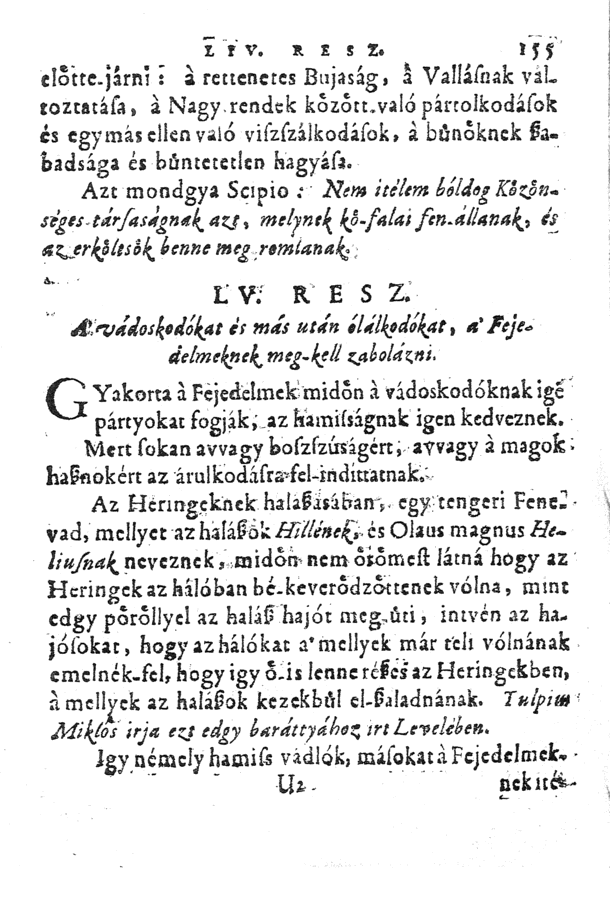 LIV. RESZ. 155
előtte-járni: à rettenetes Bujaság, à Vallásnak vál-
toztatáſa, à Nagy rendek között-való pártolkodáſok
és egymás ellen való viſzſzálkodáſok, à bűnöknek ſza-
badsága és bűntetetlen hagyáſa.
Azt mondgya Scipio: Nem itélem bóldog Közön-
séges-társaságnak azt, melynek kő-falai fen-állanak, és
az erkőltsök benne meg romlanak.
LV. RESZ.
A' vádoskodókat és más után ólálkodókat, a' Feje-
delmeknek meg-kell zabolázni.
GYakorta à Fejedelmek midőn à vádoskodóknak igē
pártyokat fogják, az hamiſságnak igen kedveznek.
Mert ſokan avvagy boſzſzúságért, avvagy à magok
haſznokért az árulkodáſra-fel-indíttatnak.
Az Héringeknek halaſzásában, egy tengeri Fene-
vad, mellyet az haláſzók Hillének, és Olaus magnus He-
liuſnak neveznek, midőn nem örömeſt látná hogy az
Heringek az hálóban bé-keverődzöttenek vólna, mint
edgy pőröllyel az haláſz hajót meg-üti, intvén az ha-
jóſokat, hogy az hálókat a' mellyek már teli vólnának
emelnék-fel, hogy igy ő-is lenne réſzes az Heringekben,
à mellyek az haláſzok kezekbűl el-ſzaladnának. Tulpius
Miklós irja ezt edgy baráttyához irt Levelében.
Igy némely hamiſs vádlók, máſokat à Fejedelmek-
U2 nek ité-